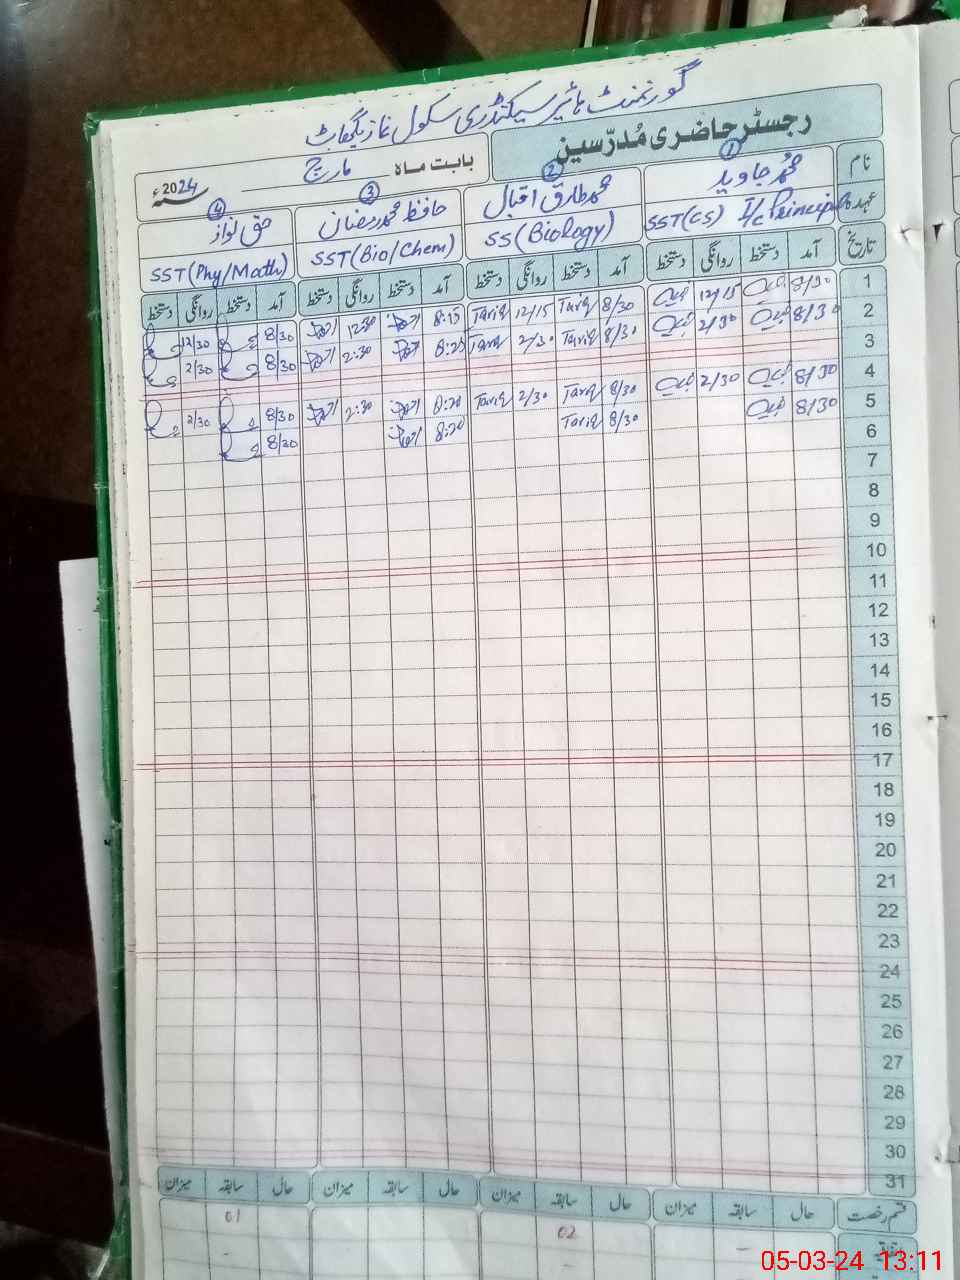 گورنمنٹ ہائیر سیکنڈری سکول
رجسٹر حاضری مُدرّسین
بابت ماہ مارچ 2024ء
نام ① محمد جاوید ② محمد طارق اقبال ③ حافظ محمد رمضان ④ حق نواز
عہدہ SST(CS) I/c Principal SS(Biology) SST(Bio/Chem) SST(Phy/Math)
تاریخ آمد دستخط روانگی دستخط آمد دستخط روانگی دستخط آمد دستخط روانگی دستخط آمد دستخط روانگی دستخط
1 8/30 12/15 8/30 Tariq 12/15 Tariq 8:15 12:30 8/30 12/30
2 8/30 2/30 8/30 Tariq 2/30 Tariq 8:25 2:30 8/30 2/30
3
4 8/30 2/30 8/30 Tariq 2/30 Tariq 8:20 2:30 8/30 2/30
5 8/30 8/30 Tariq 8:20 8/30
6
7
8
9
10
11
12
13
14
15
16
17
18
19
20
21
22
23
24
25
26
27
28
29
30
31
قسم رخصت حال سابقہ میزان حال سابقہ میزان حال سابقہ میزان حال سابقہ میزان
02 01
05-03-24 13:11